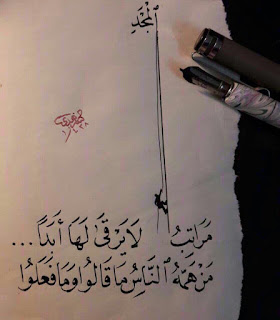 ٱلْمَجْدِ
مَرَاتِبُ لَا يَرْقَىٰ لَهَا أَبَدًا...
مَنْ هَمُّهُ ٱلنَّاسُ مَا قَالُوا وَمَا فَعَلُوا